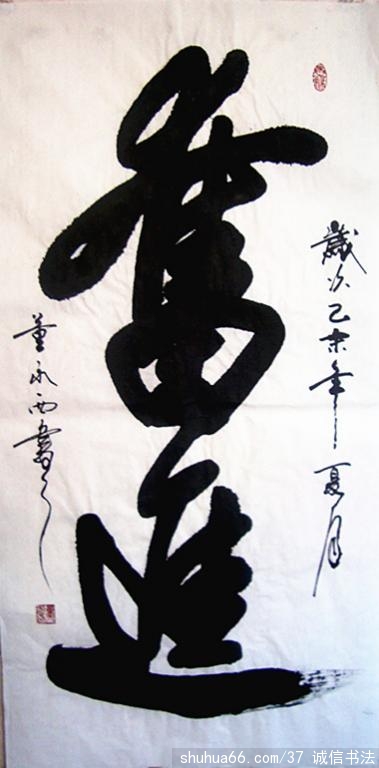 歲次乙未年夏月
奮進
董永西書
shuhua66.com/37 诚信书法